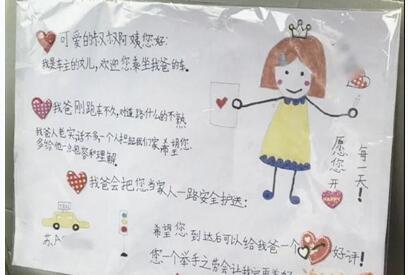 可爱的叔叔阿姨您好:
我是车主的女儿,欢迎您乘坐我爸的车。
我爸刚跑车不久,对道路什么的不熟
我爸人老实话不多一个人扛起我们家希望您
多给他一点包容和理解。
我爸会把您当家人一路安全护送:
希望您到达后可以给我爸一个好评!
您一个举手之劳会让我
愿您开
每一天!
HAPPY
苏A